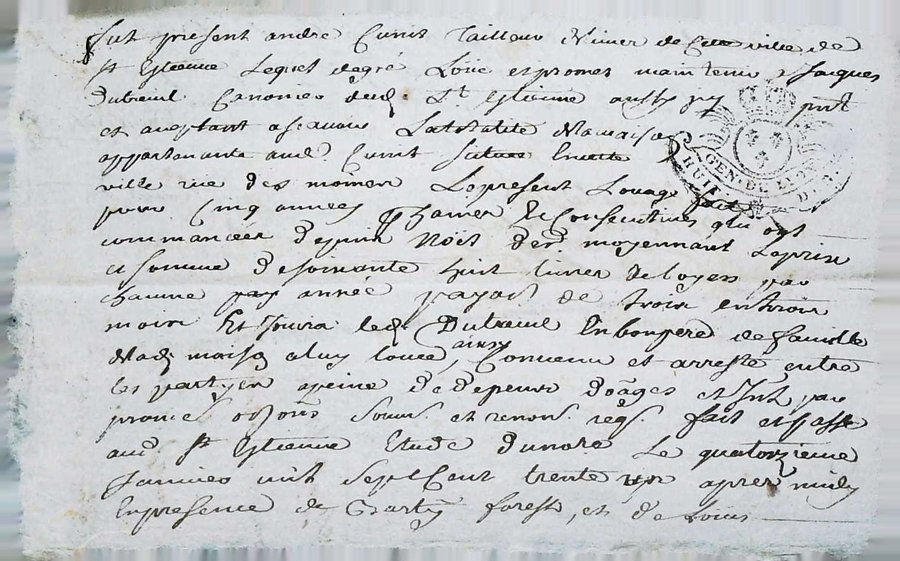 fut present andré Cunit Tailleur de cette ville de
St Estienne Lequel degré Loüe et promet maintenir a Jacques
Dutreuil Canonier dud. St Estienne aussy pnt
et acceptant ascavoir La totalité de la maison
appartenante aud. Cunit scituée ville
ville rue des Le present Louage fait
pour Cinq années et Consecutives qui ont
commancées depuis Noël der moyennant Le prix
et somme de soixante huit livres de loyer par
chacune année payable de trois en trois
mois Et Joüira led. Dutreuil En bon pere de famille
de lad. maison a luy loüée, ainsy Convenu et arresté entre
les partyes a peine de despens doages et Int par
promes oblons soums et renons reqs. fait et passé
aud. St Estienne Etude du nore Le quatorzieme
Janvier mil sept Cent trente un apres midy
En presence de forest, et de Loüis
GEN. DE LYON
HUIT D